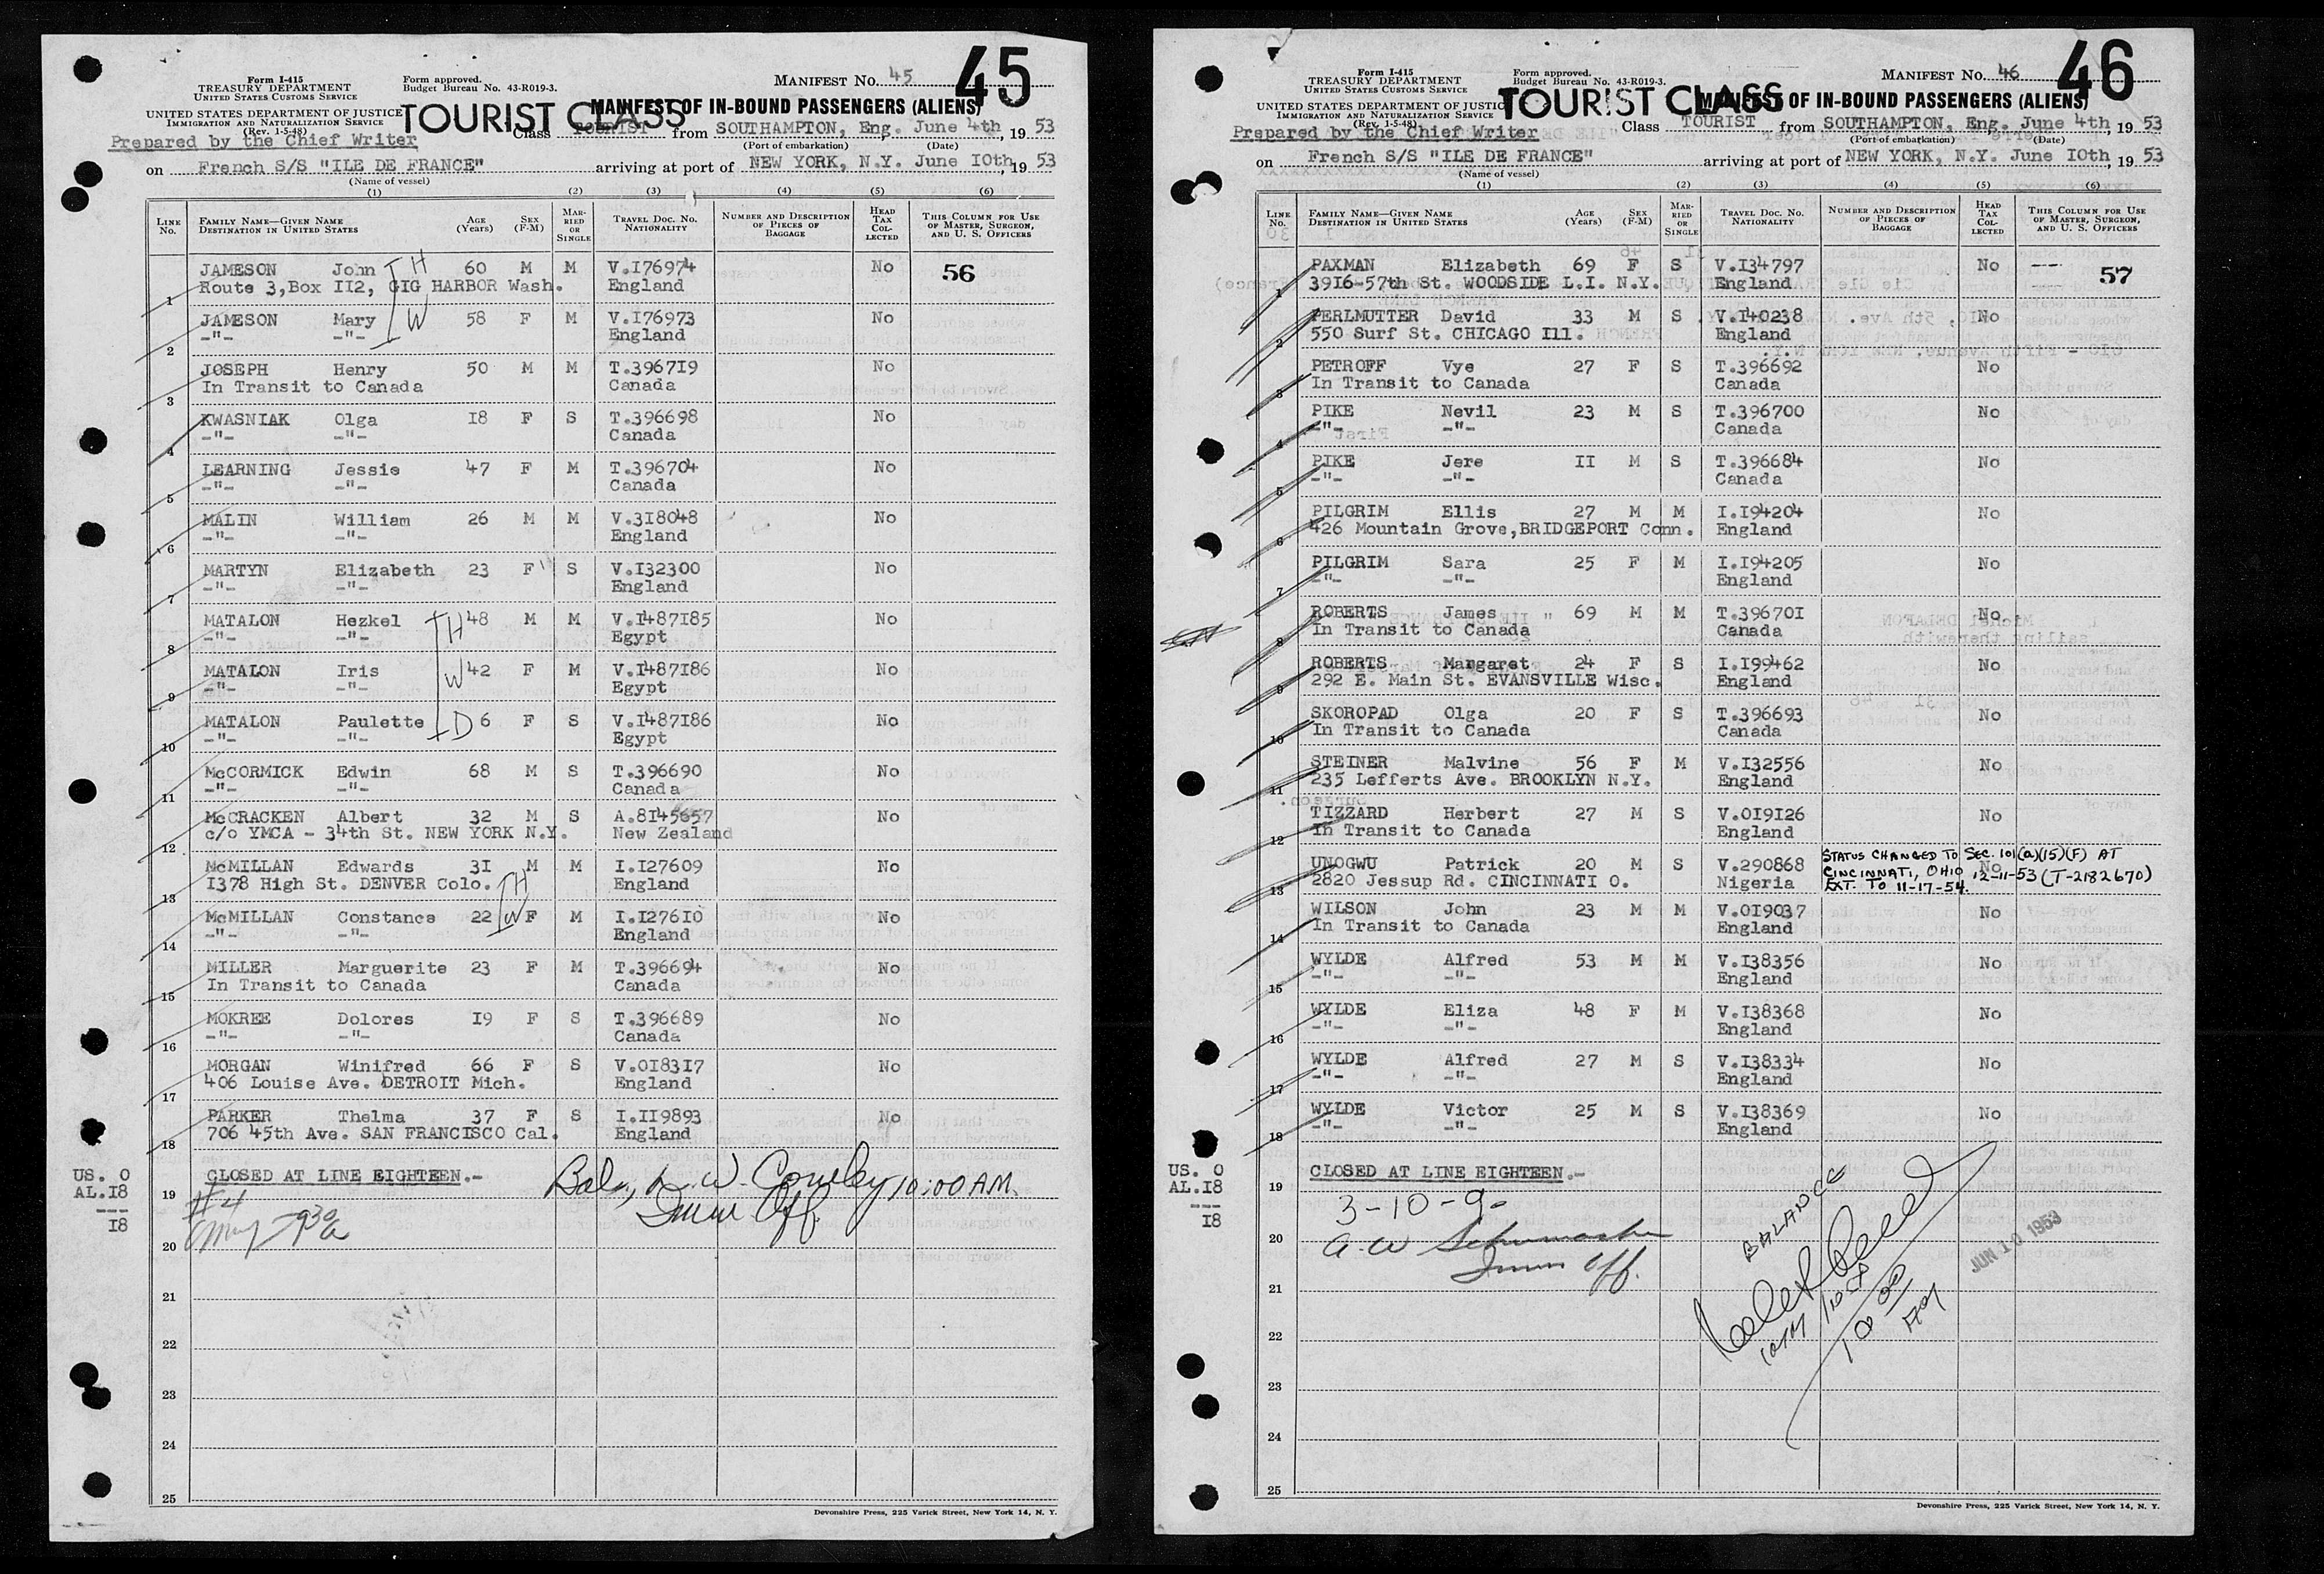 Form I-415
TREASURY DEPARTMENT
UNITED STATES CUSTOMS SERVICE
UNITED STATES DEPARTMENT OF JUSTICE
IMMIGRATION AND NATURALIZATION SERVICE
(Rev. 1-5-48)
Prepared by the Chief Writer
Form approved.
Budget Bureau No. 43-R019-3.
MANIFEST No. 45
45
TOURIST CLASS
MANIFEST OF IN-BOUND PASSENGERS (ALIENS)
Class TOURIST from SOUTHAMPTON, Eng. June 4th, 1953
(Port of embarkation) (Date)
on French S/S "ILE DE FRANCE" arriving at port of NEW YORK, N.Y. June IOth, 1953
(Name of vessel)
(1) (2) (3) (4) (5) (6)
LINE No. FAMILY NAME—GIVEN NAME DESTINATION IN UNITED STATES AGE (Years) SEX (F-M) MARRIED OR SINGLE TRAVEL DOC. NO. NATIONALITY NUMBER AND DESCRIPTION OF PIECES OF BAGGAGE HEAD TAX COLLECTED THIS COLUMN FOR USE OF MASTER, SURGEON, AND U. S. OFFICERS
JAMESON John H 60 M M V.I76974 No 56
1 Route 3,Box II2, GIG HARBOR Wash. England
JAMESON Mary W 58 F M V.I76973 No
2 -"- -"- England
JOSEPH Henry 50 M M T.3967I9 No
3 In Transit to Canada Canada
KWASNIAK Olga I8 F S T.396698 No
4 -"- -"- Canada
LEARNING Jessie 47 F M T.396704 No
5 -"- -"- Canada
MALIN William 26 M M V.3I8048 No
6 -"- -"- England
MARTYN Elizabeth 23 F S V.I32300 No
7 -"- -"- England
MATALON Hezkel H 48 M M V.I487I85 No
8 -"- -"- Egypt
MATALON Iris W 42 F M V.I487I86 No
9 -"- -"- Egypt
MATALON Paulette D 6 F S V.I487I86 No
10 -"- -"- Egypt
McCORMICK Edwin 68 M S T.396690 No
11 -"- -"- Canada
McCRACKEN Albert 32 M S A.8I45657 No
12 c/o YMCA - 34th St. NEW YORK N.Y. New Zealand
McMILLAN Edwards 3I M M I.I27609 No
13 I378 High St. DENVER Colo. H England
McMILLAN Constance 22 W F M I.I276I0 No
14 -"- -"- England
MILLER Marguerite 23 F M T.396694 No
15 In Transit to Canada Canada
MOKREE Dolores I9 F S T.396689 No
16 -"- -"- Canada
MORGAN Winifred 66 F S V.0I83I7 No
17 406 Louise Ave. DETROIT Mich. England
PARKER Thelma 37 F S I.II9893 No
18 706 45th Ave. SAN FRANCISCO Cal. England
US. 0
AL.I8
---
I8
19 CLOSED AT LINE EIGHTEEN.-
#4
Bal, 10:00 AM.
Imm Off.
20
21
22
23
24
25
Devonshire Press, 225 Varick Street, New York 14, N. Y.
Form I-415
TREASURY DEPARTMENT
UNITED STATES CUSTOMS SERVICE
UNITED STATES DEPARTMENT OF JUSTICE
IMMIGRATION AND NATURALIZATION SERVICE
(Rev. 1-5-48)
Prepared by the Chief Writer
Form approved.
Budget Bureau No. 43-R019-3.
MANIFEST No. 46
46
TOURIST CLASS
MANIFEST OF IN-BOUND PASSENGERS (ALIENS)
Class TOURIST from SOUTHAMPTON, Eng. June 4th, 1953
(Port of embarkation) (Date)
on French S/S "ILE DE FRANCE" arriving at port of NEW YORK, N.Y. June IOth, 1953
(Name of vessel)
(1) (2) (3) (4) (5) (6)
LINE No. FAMILY NAME—GIVEN NAME DESTINATION IN UNITED STATES AGE (Years) SEX (F-M) MARRIED OR SINGLE TRAVEL DOC. NO. NATIONALITY NUMBER AND DESCRIPTION OF PIECES OF BAGGAGE HEAD TAX COLLECTED THIS COLUMN FOR USE OF MASTER, SURGEON, AND U. S. OFFICERS
PAXMAN Elizabeth 69 F S V.I34797 No --- 57
1 39I6-57th St. WOODSIDE L.I. N.Y. England
PERLMUTTER David 33 M S V.I40238 No
2 550 Surf St. CHICAGO Ill. England
PETROFF Vye 27 F S T.396692 No
3 In Transit to Canada Canada
PIKE Nevil 23 M S T.396700 No
4 -"- -"- Canada
PIKE Jere II M S T.396684 No
5 -"- -"- Canada
PILGRIM Ellis 27 M M I.I94204 No
6 426 Mountain Grove,BRIDGEPORT Conn. England
PILGRIM Sara 25 F M I.I94205 No
7 -"- -"- England
ROBERTS James 69 M M T.39670I No
8 In Transit to Canada Canada
ROBERTS Margaret 24 F S I.I99462 No
9 292 E. Main St. EVANSVILLE Wisc. England
SKOROPAD Olga 20 F S T.396693 No
10 In Transit to Canada Canada
STEINER Malvine 56 F M V.I32556 No
11 235 Lefferts Ave. BROOKLYN N.Y. England
TIZZARD Herbert 27 M S V.0I9I26 No
12 In Transit to Canada England
UNOGWU Patrick 20 M S V.290868 No
13 2820 Jessup Rd. CINCINNATI O. Nigeria
STATUS CHANGED TO SEC. 101(a)(15)(F) AT
CINCINNATI, OHIO, 12-11-53 (T-2182670)
EXT. TO 11-17-54.
WILSON John 23 M M V.0I9037 No
14 In Transit to Canada England
WYLDE Alfred 53 M M V.I38356 No
15 -"- -"- England
WYLDE Eliza 48 F M V.I38368 No
16 -"- -"- England
WYLDE Alfred 27 M S V.I38334 No
17 -"- -"- England
WYLDE Victor 25 M S V.I38369 No
18 -"- -"- England
US. 0
AL.I8
---
I8
19 CLOSED AT LINE EIGHTEEN.-
3-10-9-
20 A. W Schumacher
Imm Off.
BALANCE
JUN 10 1953
21
22
23
24
25
Devonshire Press, 225 Varick Street, New York 14, N. Y.